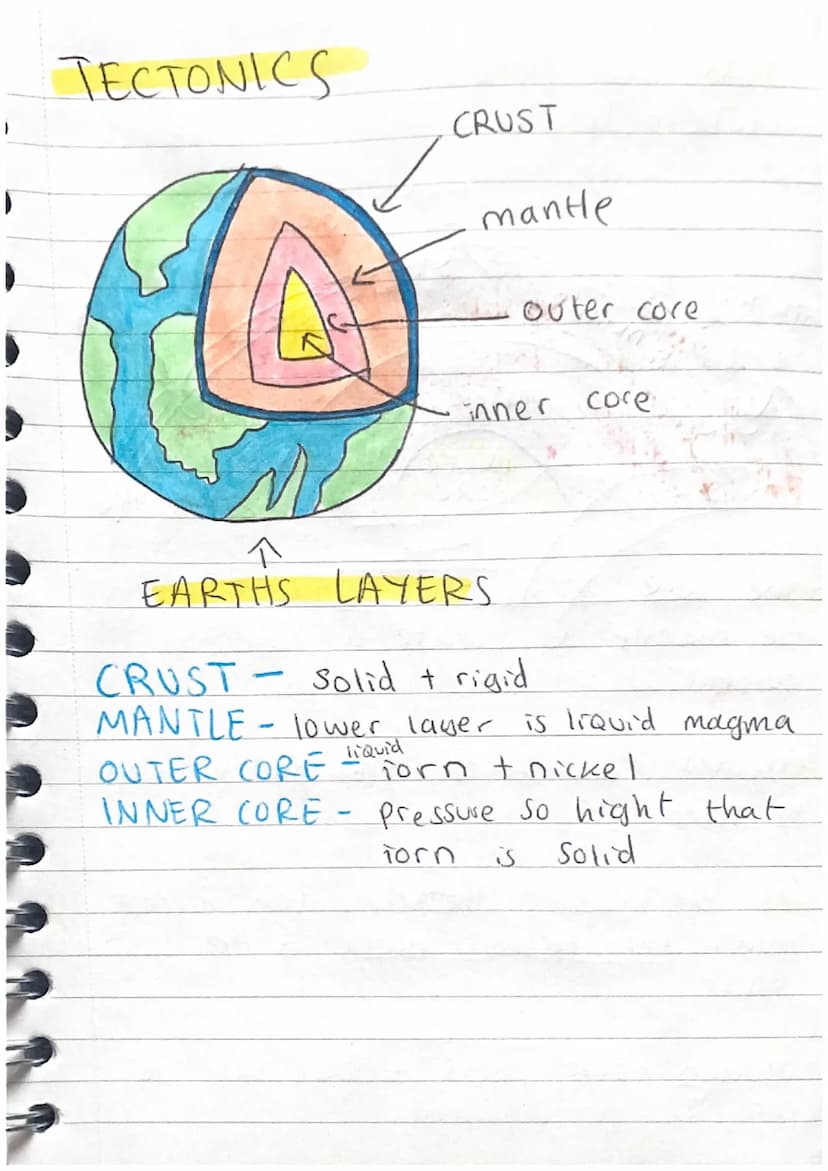 TECTONICS
CRUST
mantle
outer core
inner core
EARTHS LAYERS
CRUST - solid + rigid
MANTLE - lower layer is liquid magma
OUTER CORE - liquid iorn + nickel
INNER CORE - pressure so hight that
iorn is solid